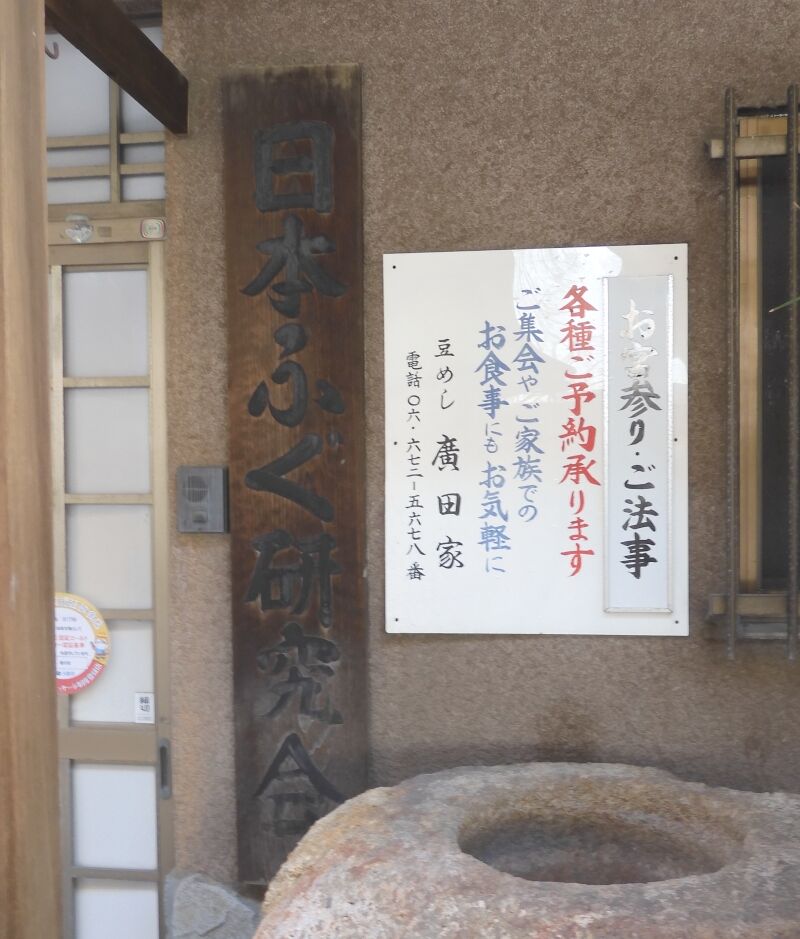 お宮参り・ご法事
各種ご予約承ります
ご集会やご家族での
お食事にもお気軽に
豆めし 廣田家
電話〇六・六七二一五六七八番
日本ふぐ研究会